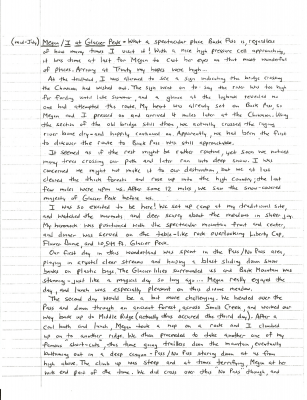 (mid-July) Megan / I at Glacier Peak - What a spectacular place Buck Pass is, regardless
of how many times I visit it! With a nice high pressure cell approaching,
it was time at last for Megan to cast her eyes on that most wonderful
of places. Arriving at Trinity my hopes were high...
At the trailhead, I was alarmed to see a sign indicating the bridge crossing
the Chiwawa had washed out. The sign went on to say the river was too high
for fording until late Summer, and a glance at the logbook revealed no
one had attempted the route. My heart was already set on Buck Pass, so
Megan and I pressed on and arrived 2 miles later at the Chiwawa. Using
the section of the old bridge still there, we actually crossed the raging
river bone dry - and happily continued on. Apparently, we had been the first
to discover the route to Buck Pass was still approachable.
It seemed as if the rest might be rather routine, yet soon we noticed
many trees crossing our path and later ran into deep snow. I was
concerned we might not make it to our destination, but we at last
cleared the thick forests and rose up into the high country, the last
few miles were upon us. After some 12 miles, we saw the snow-covered
majesty of Glacier Peak before us.
I was so excited to be here! We set up camp at my traditional site,
and watched the marmots and deer scurry about the meadows in sheer joy.
My hammock was positioned with the spectacular mountain front and center,
and dinner was served on the table-like rock overlooking Liberty Cap,
Flower Dome, and 10,541 ft. Glacier Peak.
Our first day in this wonderland was spent in the Pass/No Pass area,
playing in crystal clear streams and having a blast sliding down snow
banks on plastic bags. The Glacier lilies surrounded us and Buck Mountain was
stunning - just like a magical day so long ago... Megan really enjoyed the
day, and lunch was especially pleasant on this divine meadow.
The second day would be a bit more challenging. We headed over the
Pass and down through an ancient forest across Small Creek and worked our
way back up to Middle Ridge (actually this occurred the third day). After a
cool bath and lunch, Megan took a nap on a rock and I climbed
up on to another ridge. We then proceeded to take another one of my
famous short-cuts, this time going trailless down the mountain, eventually
bottoming out in a deep canyon - Pass/No Pass staring down at us from
high above. The climb up was steep and at times terrifying, Megan at her
wits end part of the time. We did cross over this No Pass though, and